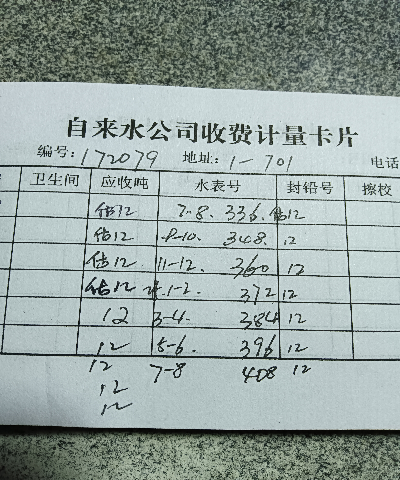 自来水公司收费计量卡片
编号: 172079 地址: 1-701 电话
卫生间 应收吨 水表号 封铅号 擦校
估12 7-8. 336. 估12
估12 9-10. 348. 12
估12 11-12. 360 12
估12 1-2. 372 12
12 3-4. 384 12
12 5-6. 396 12
12 7-8 408 12
12
12